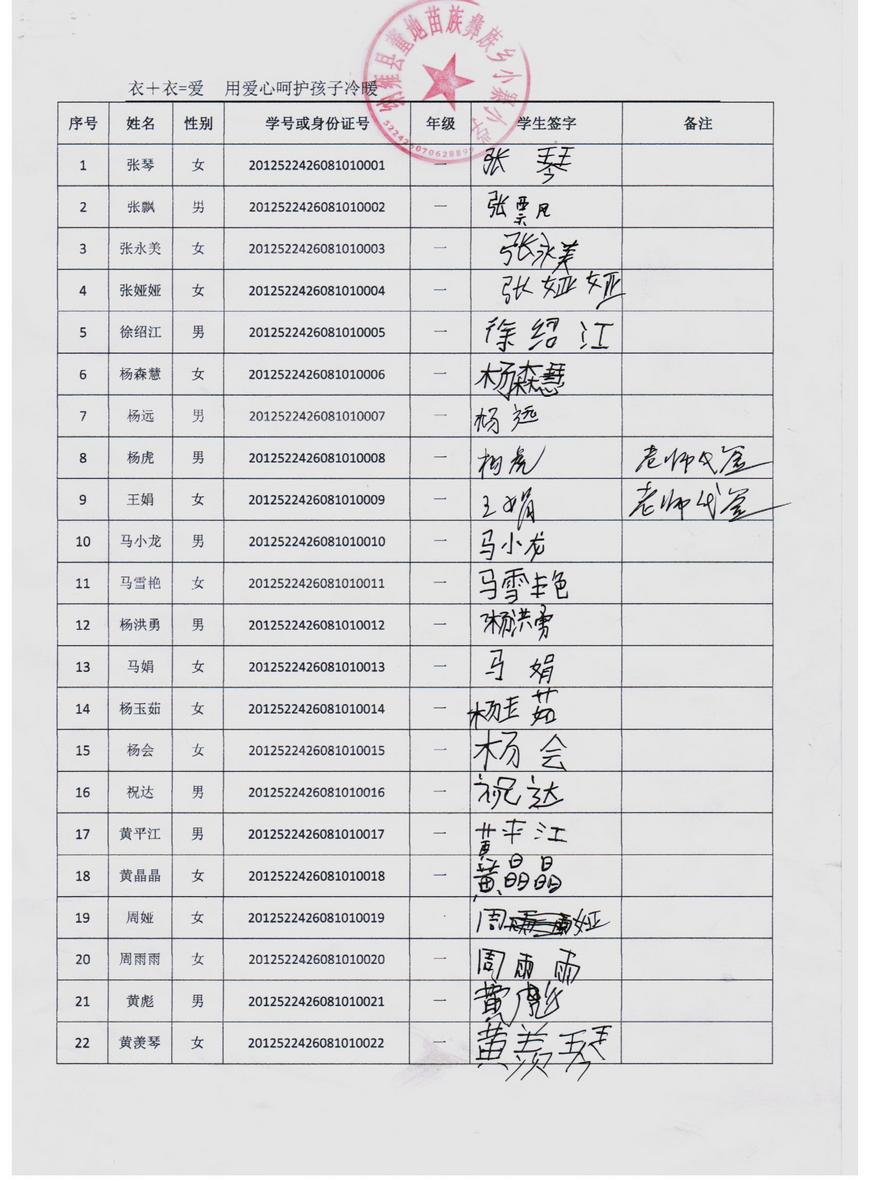 纳雍县董地苗族彝族乡小寨小学
衣＋衣=爱 用爱心呵护孩子冷暖
序号 姓名 性别 学号或身份证号 年级 学生签字 备注
1 张琴 女 2012522426081010001 一 张琴
2 张飘 男 2012522426081010002 一 张飘
3 张永美 女 2012522426081010003 一 张永美
4 张娅娅 女 2012522426081010004 一 张娅娅
5 徐绍江 男 2012522426081010005 一 徐绍江
6 杨森慧 女 2012522426081010006 一 杨森慧
7 杨远 男 2012522426081010007 一 杨远
8 杨虎 男 2012522426081010008 一 杨虎 老师代签
9 王娟 女 2012522426081010009 一 王娟 老师代签
10 马小龙 男 2012522426081010010 一 马小龙
11 马雪艳 女 2012522426081010011 一 马雪艳
12 杨洪勇 男 2012522426081010012 一 杨洪勇
13 马娟 女 2012522426081010013 一 马娟
14 杨玉茹 女 2012522426081010014 一 杨玉茹
15 杨会 女 2012522426081010015 一 杨会
16 祝达 男 2012522426081010016 一 祝达
17 黄平江 男 2012522426081010017 一 黄平江
18 黄晶晶 女 2012522426081010018 一 黄晶晶
19 周娅 女 2012522426081010019 周娅
20 周雨雨 女 2012522426081010020 一 周雨雨
21 黄彪 男 2012522426081010021 一 黄彪
22 黄羡琴 女 2012522426081010022 一 黄羡琴